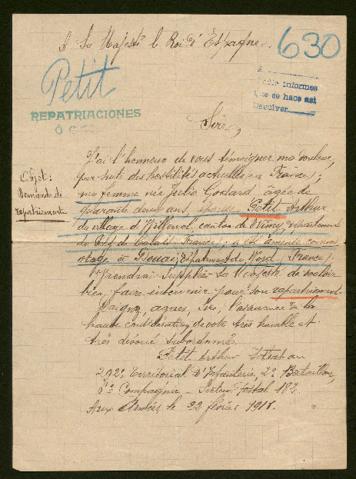 A Sa Majesté le Roi d'Espagne
630
Petit
REPATRIACIONES
Sire,
Objet:
Demande de
rapatriement
J'ai l'honneur de vous témoigner ma douleur,
par suite des hostilités actuelles en France;
ma femme née Godard, âgée de
quarante deux ans, épouse Petit Arthur
du village d' canton de Vimy, département
du Pas de Calais France; a été comme
otage à Douai, département du Nord, France;
Sa Majesté de vouloir
bien faire intervenir pour son rapatriement
Daignez agréer, Sire, l'assurance de la
haute considération de votre très humble et
très dévoué subordonné.
Petit Arthur
292e Territorial d'Infanterie, 2e Bataillon,
Compagnie - Secteur postal 187
Aux Armées le 22 février 1918.